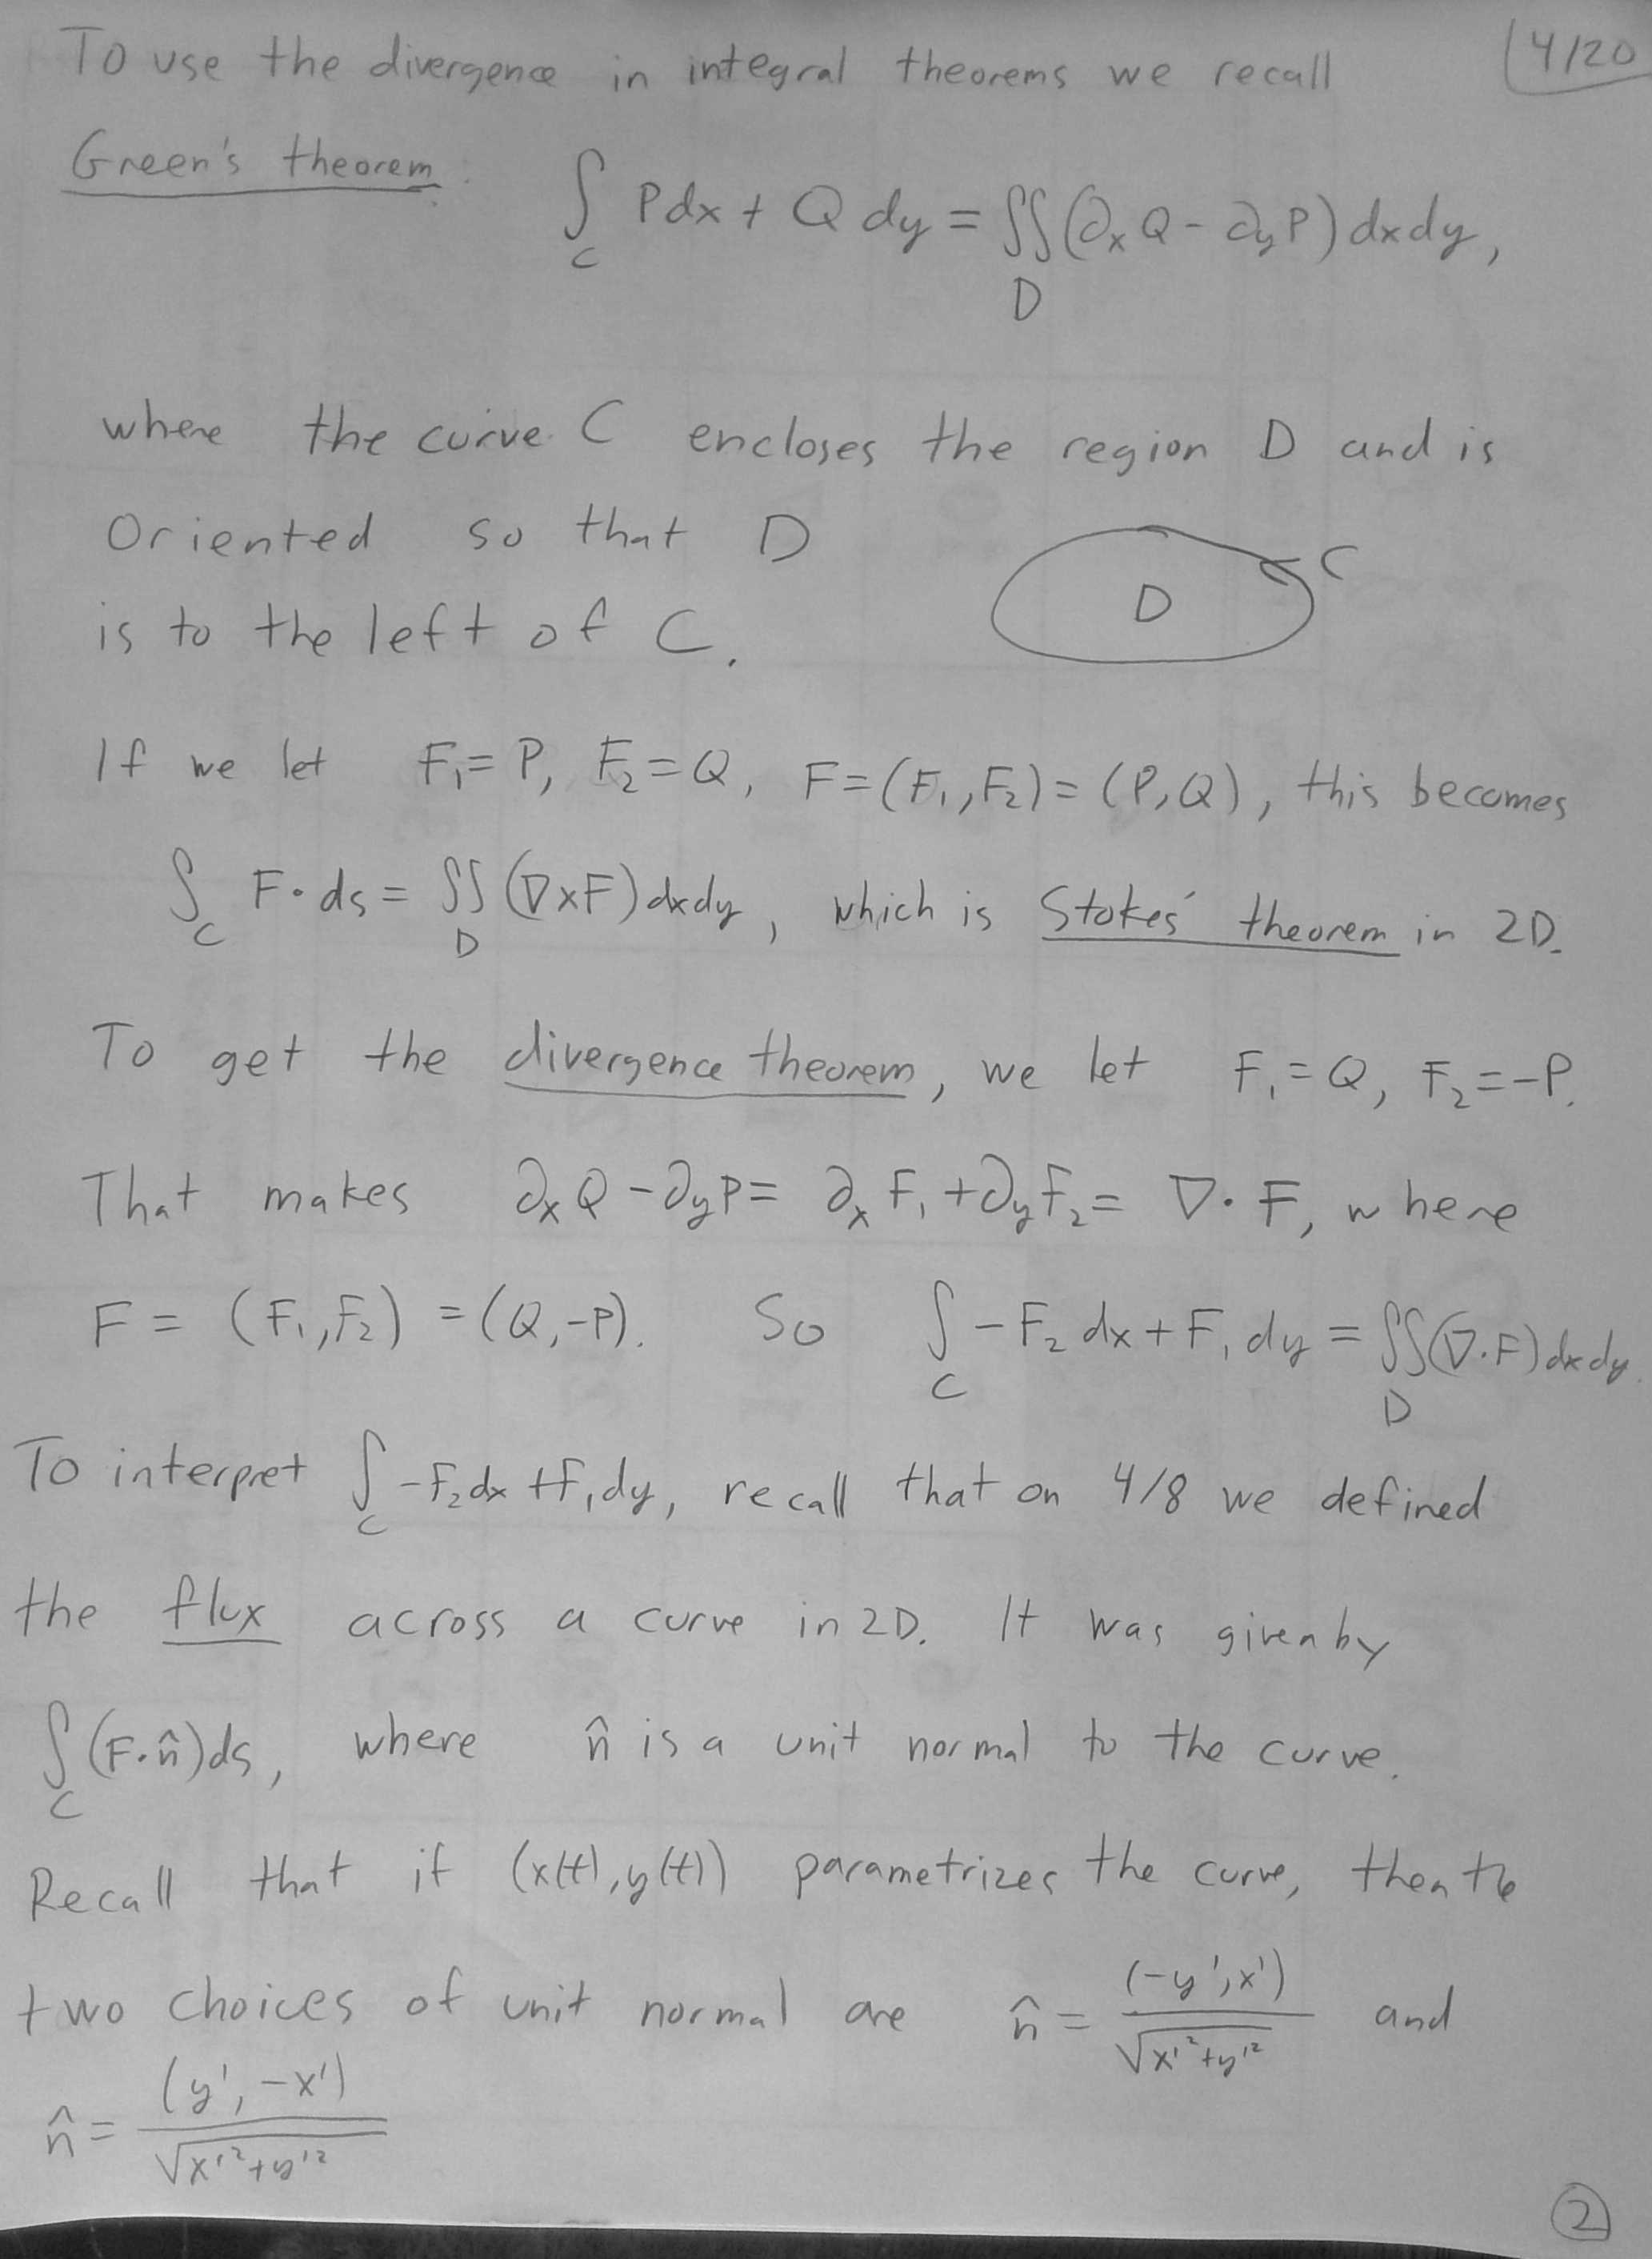 To use the divergence in integral theorems we recall 4/20
Green's theorem:
∫_C Pdx + Q dy = ∬_D (∂_x Q - ∂_y P) dxdy,
where the curve C encloses the region D and is
Oriented so that D
is to the left of C.
C
D
If we let F₁ = P, F₂ = Q, F = (F₁, F₂) = (P, Q), this becomes
∫_C F · ds = ∬_D (∇×F) dxdy, which is Stokes' theorem in 2D.
To get the divergence theorem, we let F₁ = Q, F₂ = -P.
That makes ∂_x Q - ∂_y P = ∂_x F₁ + ∂_y F₂ = ∇ · F, where
F = (F₁, F₂) = (Q, -P). So ∫_C -F₂ dx + F₁ dy = ∬_D (∇·F) dxdy.
To interpret ∫_C -F₂ dx + F₁ dy, recall that on 4/8 we defined
the flux across a curve in 2D. It was given by
∫_C (F · n̂) ds, where n̂ is a unit normal to the curve.
Recall that if (x(t), y(t)) parametrizes the curve, then the
two choices of unit normal are n̂ = (-y', x') / √(x'² + y'²) and
n̂ = (y', -x') / √(x'² + y'²)
2